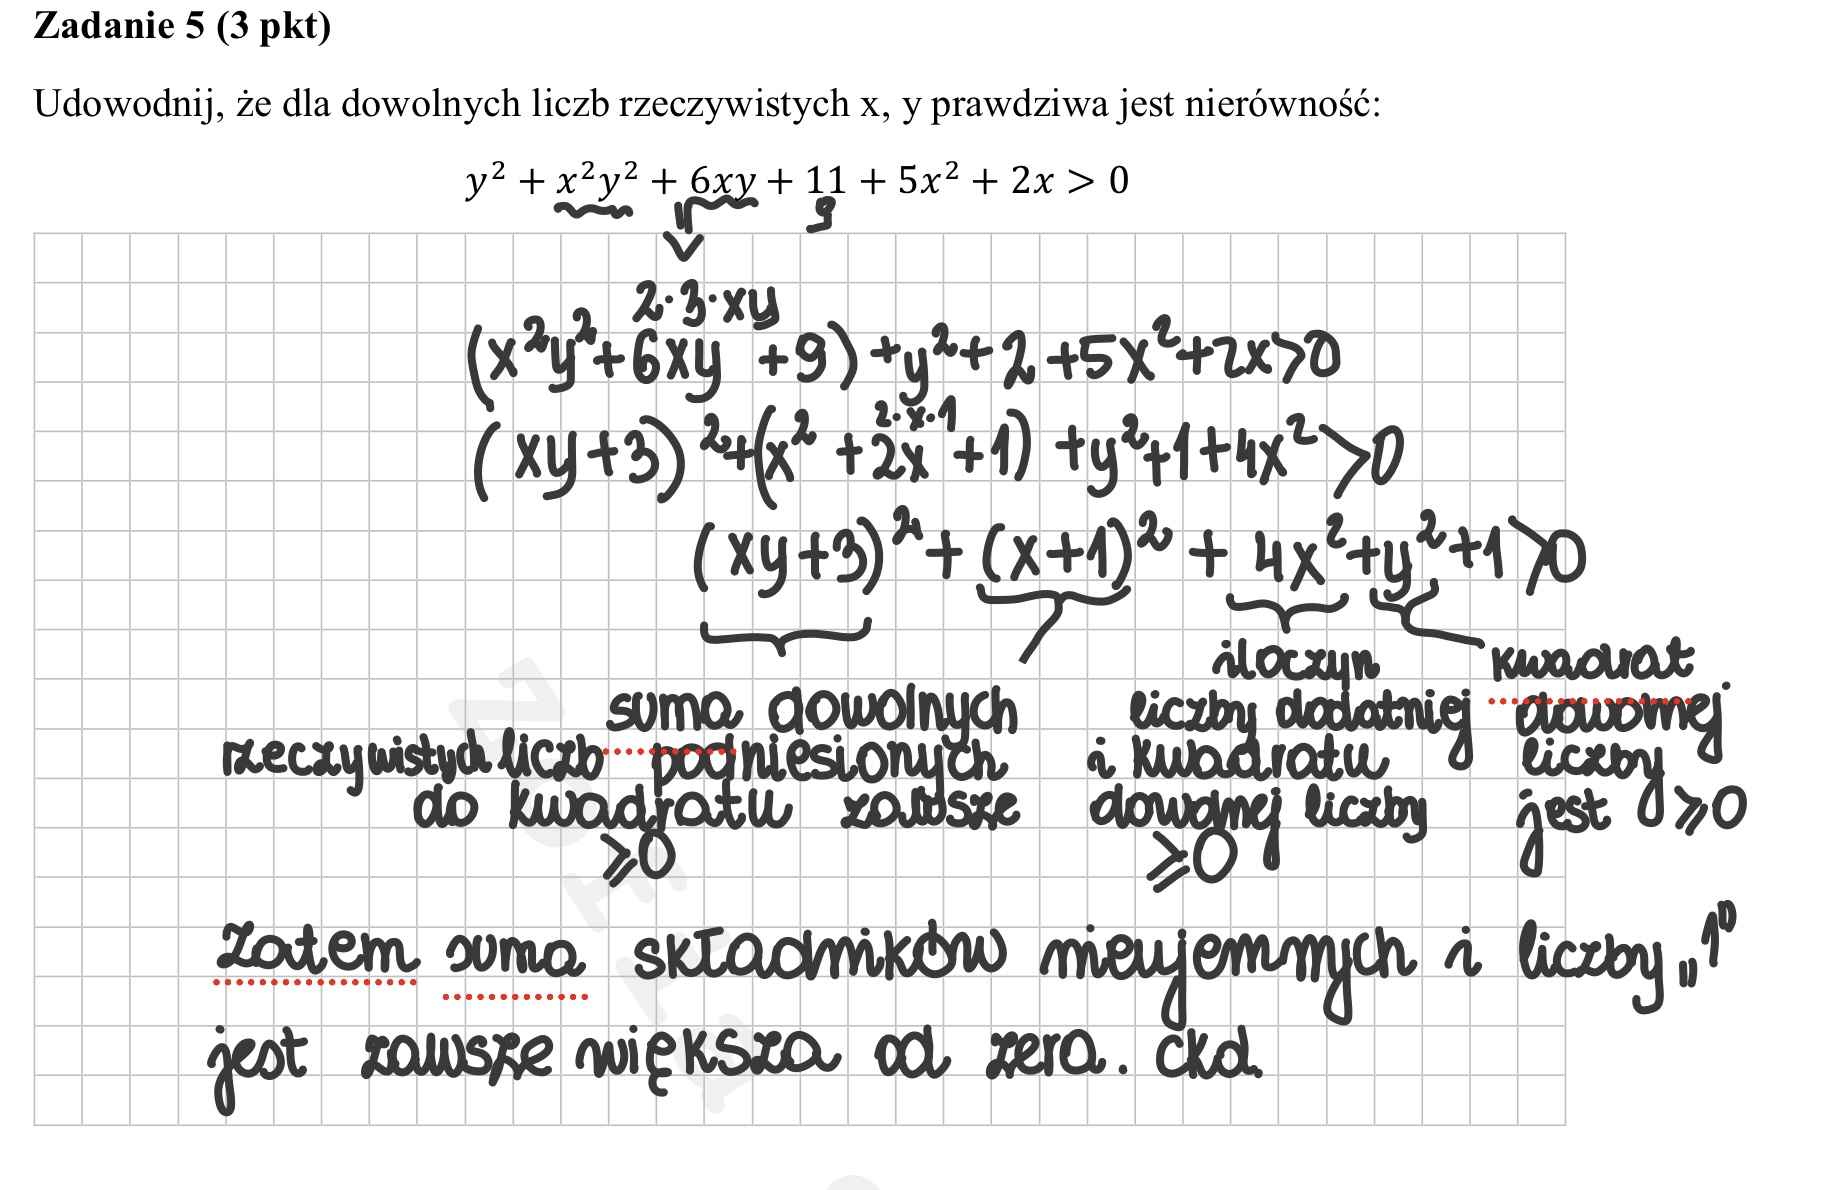 Zadanie 5 (3 pkt)
Udowodnij, że dla dowolnych liczb rzeczywistych x, y prawdziwa jest nierówność:
y² + x²y² + 6xy + 11 + 5x² + 2x > 0
9
2·3·xy
(x²y²+6xy +9) +y²+2+5x²+2x>0
2·x·1
(xy+3)²+(x²+2x+1) +y²+1+4x²>0
(xy+3)² + (x+1)² + 4x²+y²+1>0
suma dowolnych
rzeczywistych liczb podniesionych
do kwadratu zawsze
⩾0
iloczyn
liczby dodatniej
i kwadratu
dowolnej liczby
⩾0
kwadrat
dowolnej
liczby
jest ⩾0
Zatem suma składników nieujemnych i liczby „1”
jest zawsze większa od zera. ckd.